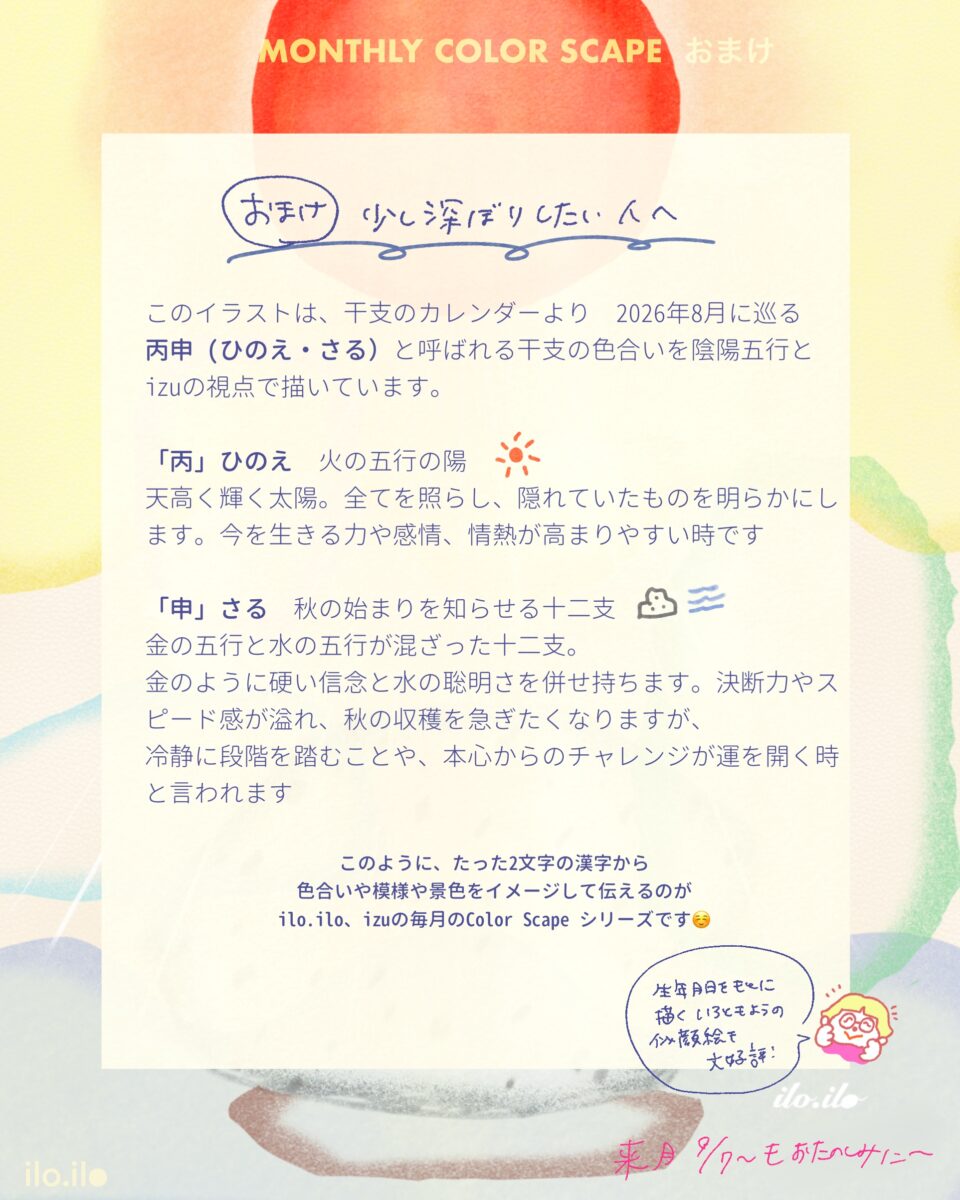 MONTHLY COLOR SCAPE おまけ
おまけ 少し深ぼりしたい人へ
このイラストは、干支のカレンダーより　2026年8月に巡る
丙申（ひのえ・さる）と呼ばれる干支の色合いを陰陽五行と
izuの視点で描いています。
「丙」ひのえ　火の五行の陽
天高く輝く太陽。全てを照らし、隠れていたものを明らかにし
ます。今を生きる力や感情、情熱が高まりやすい時です
「申」さる　秋の始まりを知らせる十二支
金の五行と水の五行が混ざった十二支。
金のように硬い信念と水の聡明さを併せ持ちます。決断力やス
ピード感が溢れ、秋の収穫を急ぎたくなりますが、
冷静に段階を踏むことや、本心からのチャレンジが運を開く時
と言われます
このように、たった2文字の漢字から
色合いや模様や景色をイメージして伝えるのが
ilo.ilo、izuの毎月のColor Scape シリーズです☺️
生年月日をもとに
描く いろともようの
似顔絵も
大好評！
ilo.ilo
来月 9/7〜もおたのしみに〜
ilo.ilo